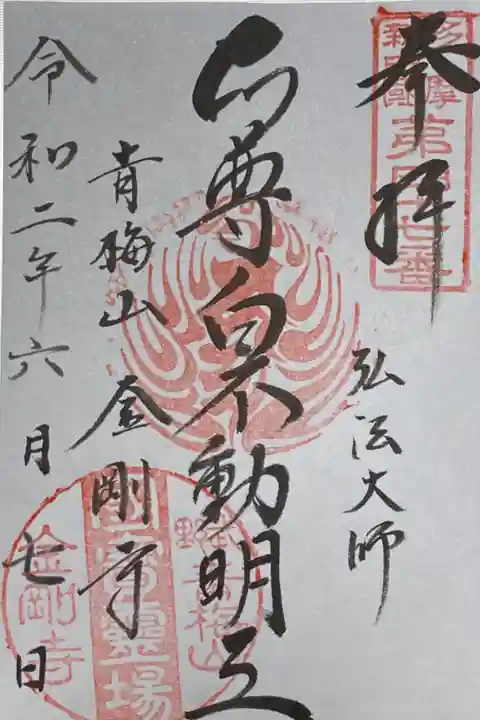 奉拝
弘法大師
本尊白不動明王
青梅山 金剛寺
令和二年六月七日
多摩
新四国
霊場
青梅山
金剛寺